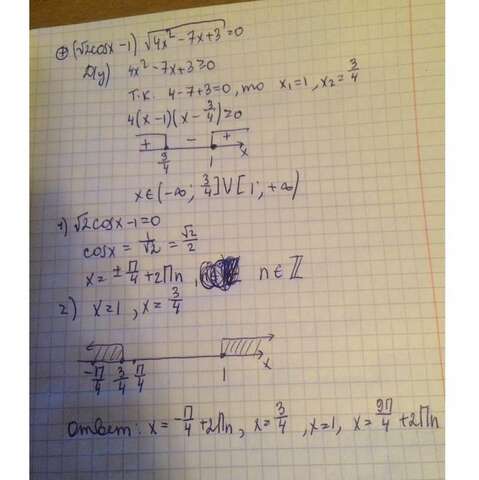 ⊕ (√2cosx-1) √4x²-7x+3=0
D(y) 4x²-7x+3≥0
Т.к. 4-7+3=0, то x₁=1, x₂=3/4
4(x-1)(x-3/4)≥0
+ - +
3/4 1 x
x∈(-∞; 3/4]∨[1; +∞)
1) √2cosx-1=0
cosx=1/√2=√2/2
x=±П/4+2Пn, n∈Z
2) x=1, x=3/4
-П/4 3/4 П/4 1 x
Ответ: x=-П/4+2Пn, x=3/4, x=1, x=9П/4+2Пn